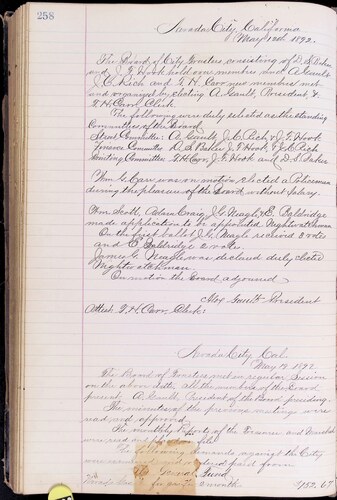 258
Nevada City, California
May 12th 1892.
The Board of City Trustees consisting of D. S. Baker
and J. F. Hook hold over members and A. Gault
J. C. Rich and T. H. Carr new members met
and organized by electing A. Gault, President, &
T. H. Carr, Clerk.
The following were duly selected as the standing
Committees of the Board
Street Committee: A. Gault, J. C. Rich & J. F. Hook
Finance Committee D. S. Baker, J. F. Hook & J. C. Rich
Committee T. H. Carr, J. F. Hook and D. S. Baker
Wm G. Carr was on motion elected a Policeman
during the pleasure of the Board without Salary.
Wm. Scott, Adam Craig, J. G. Neagle & E. Baldridge
made application to be appointed Nightwatchman
On the first ballot J. G. Neagle received 3 votes
and E. Baldridge 2 votes.
James G. Neagle was declared duly elected
Nightwatchman.
On motion the board adjourned
Alex Gault President
Attest. T. H. Carr, Clerk.
Nevada City, Cal.
May 19, 1892.
The Board of Trustees met in regular Session
on the above date, all the members of the Board
present, A. Gault, President of the Board presiding.
The minutes of the previous meetings were
read and approved.
The monthly reports of the Treasurer and Marshal
were read and placed on file.
The following demands against the City
were and ordered paid from
General Fund
for month $152.67